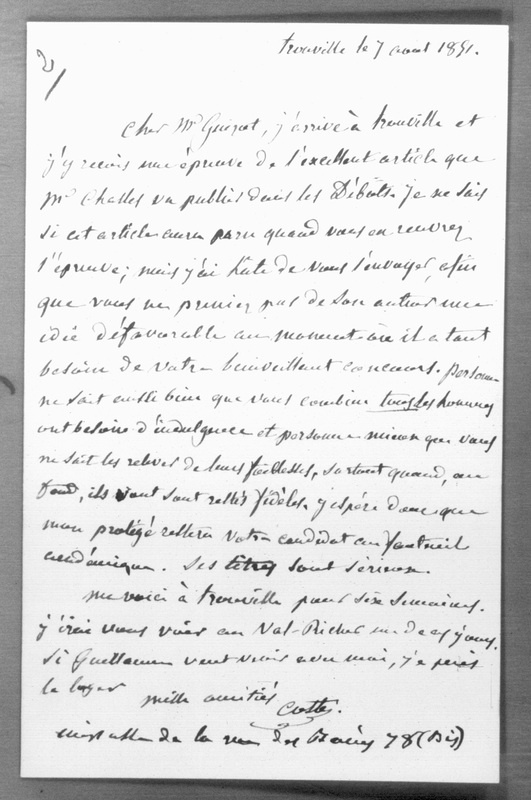 2/
trouville le 7 aout 1851.
Cher Mr Guizot, j'arrive à trouville et
j'y reçois une épreuve de l'excellent article que
Mr Chasles va publier dans les Débats. Je ne sais
si cet article aura paru quand vous en recevrez
l'épreuve; mais j'ai hâte de vous l'envoyer, afin
que vous ne preniez pas de son auteur une
idée défavorable au moment où il a tant
besoin de votre bienveillant concours. personne
ne sait aussi bien que vous combien tous les hommes
ont besoin d'indulgence et personne mieux que vous
ne sait les relever de leurs faiblesses, surtout quand, au
fond, ils vous sont restés fidèles. j'espère donc que
mon protégé restera votre candidat au fauteuil
académique. Ses titres sont sérieux.
me voici à trouville pour six semaines.
j'irai vous voir au Val-Richer un de ces jours.
Si Guillaume veut venir avec moi, j'ai
le loger mille amitiés
de la rue des Bains 78 (Bis)